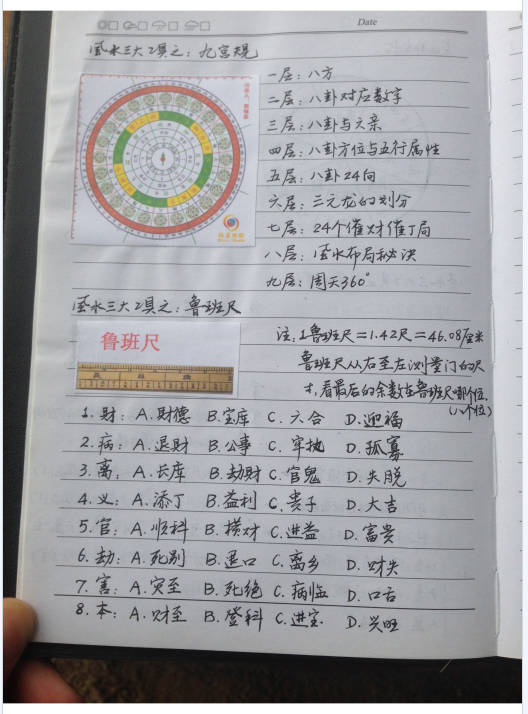 Date
风水三大工具之：九宫规
一层：八方
二层：八卦对应数字
三层：八卦与六亲
四层：八卦方位与五行属性
五层：八卦24向
六层：三元龙的划分
七层：24个催财催丁局
八层：风水布局秘决
九层：周天360°
风水三大工具之：鲁班尺
鲁班尺
注：1鲁班尺＝1.42尺＝46.08厘米
鲁班尺从右至左测量门的尺
寸，看最后的余数在鲁班尺哪个位
(八个位)
1. 财：A. 财德 B. 宝库 C. 六合 D. 迎福
2. 病：A. 退财 B. 公事 C. 牢执 D. 孤寡
3. 离：A. 长库 B. 劫财 C. 官鬼 D. 失脱
4. 义：A. 添丁 B. 益利 C. 贵子 D. 大吉
5. 官：A. 顺科 B. 横财 C. 进益 D. 富贵
6. 劫：A. 死别 B. 退口 C. 离乡 D. 财失
7. 害：A. 灾至 B. 死绝 C. 病临 D. 口舌
8. 本：A. 财至 B. 登科 C. 进宝 D. 兴旺